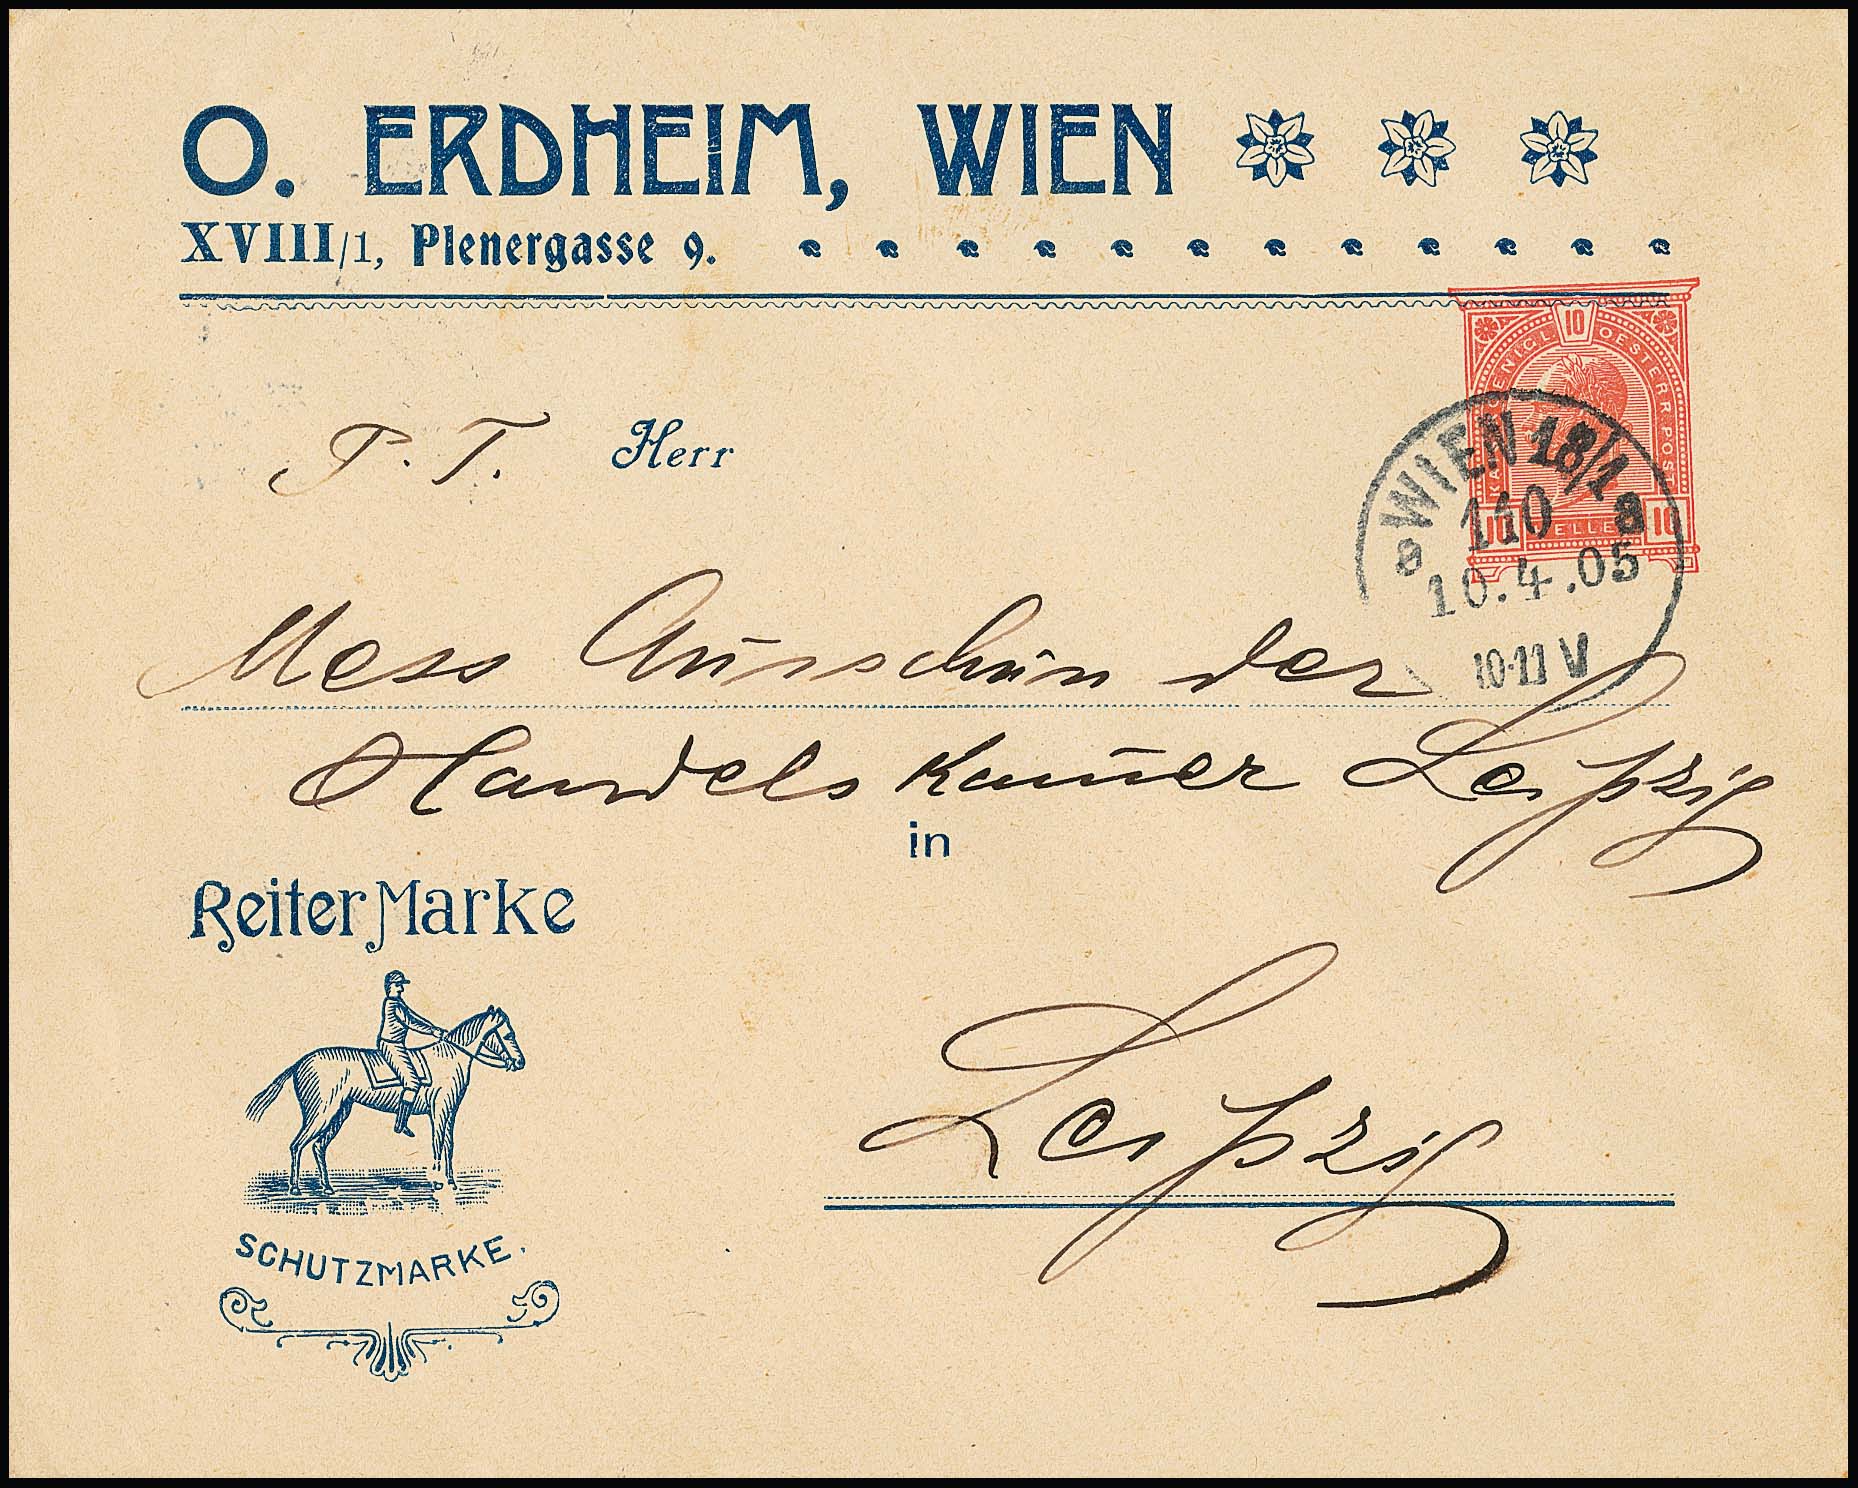 O. ERDHEIM, WIEN
XVIII/1, Plenergasse 9.
10
KAIS. KÖNIGL. OESTERR. POST
10 HELLER 10
WIEN 18/1
a 110 a
10.4.05
10-11 V
P. T. Herr
Mess Ausschuss der
Handelskam̄er Leipzig
in
Reiter Marke
Leipzig
SCHUTZMARKE.